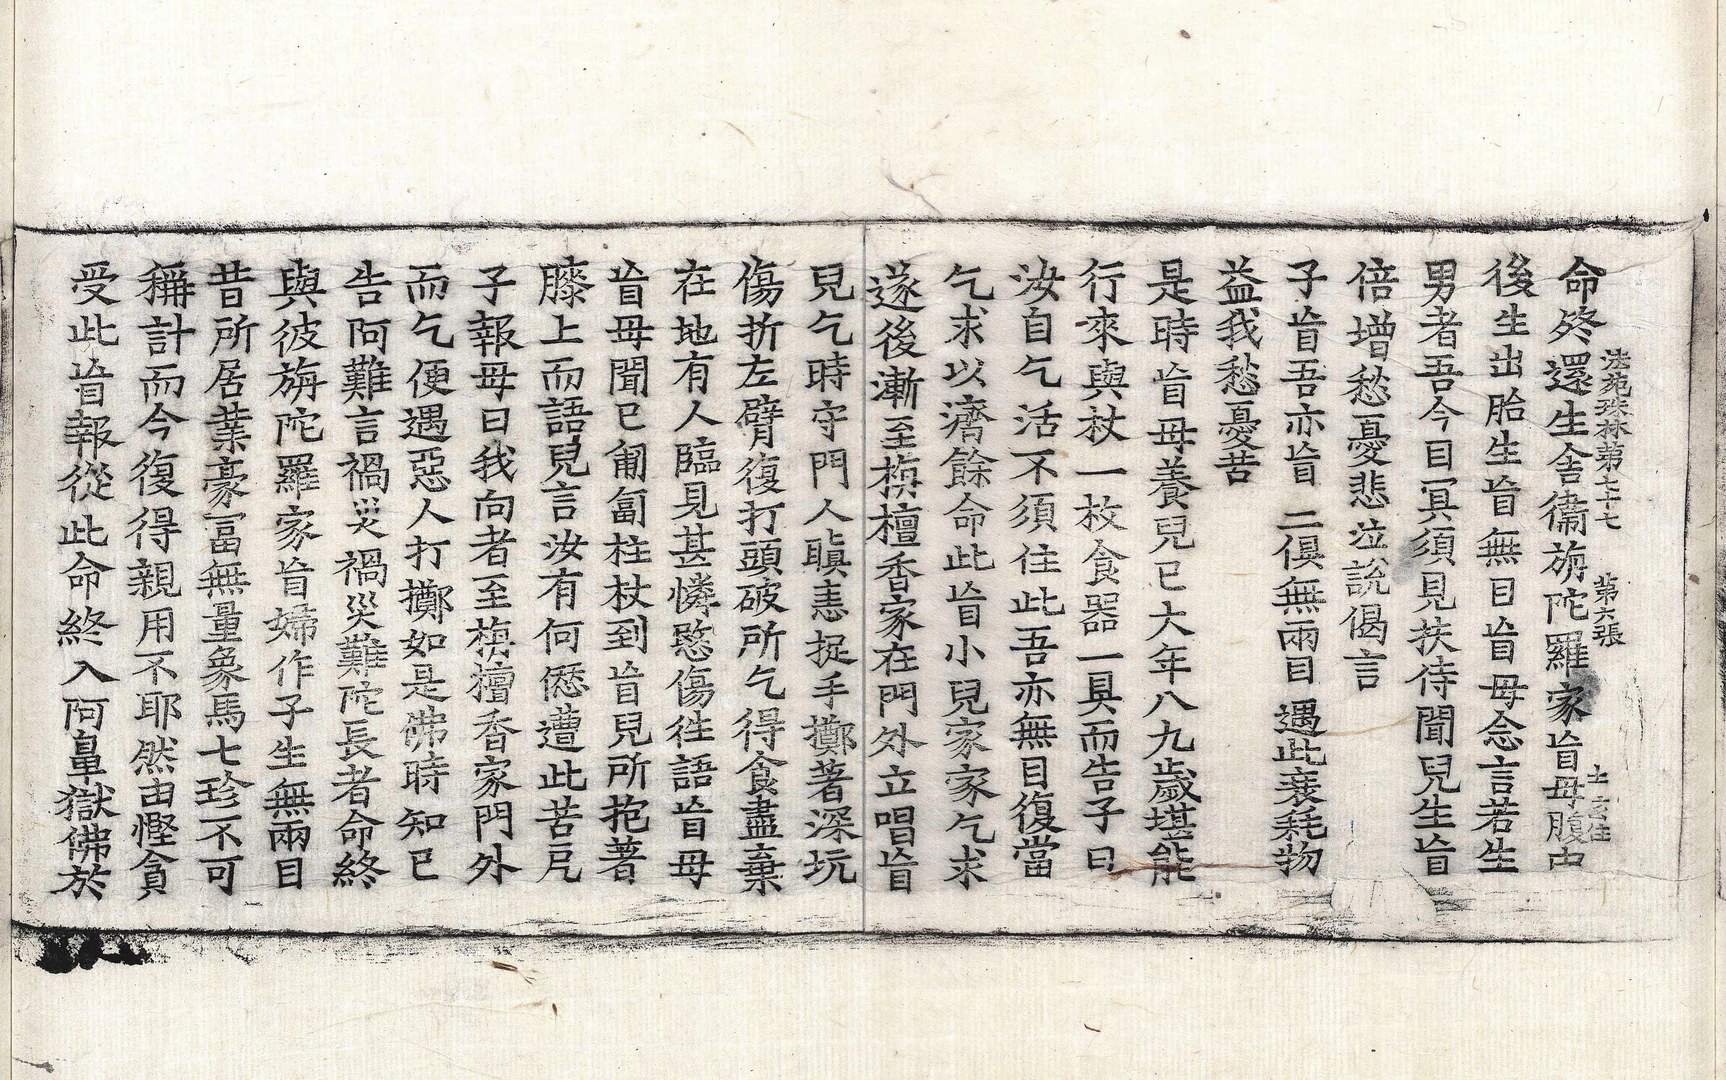 法苑珠林第七十七　第六張　士玄生
命終還生舍衞旃陀羅家盲母腹中
後生出胎生盲無目盲母念言若生
男者吾今目冥須見扶侍聞兒生盲
倍增愁憂悲泣說偈言
子盲吾亦盲　二俱無兩目　遇此衰耗物
益我愁憂苦
是時盲母養兒已大年八九歲堪能
行來與杖一枚食器一具而告子曰
汝自乞活不須住此吾亦無目復當
乞求以濟餘命此盲小兒家家乞求
遂後漸至栴檀香家在門外立唱盲
兒乞時守門人瞋恚捉手擲著深坑
傷折左臂復打頭破所乞得食盡棄
在地有人臨見甚憐愍傷往語盲母
盲母聞已匍匐柱杖到盲兒所抱著
膝上而語兒言汝有何愆遭此苦厄
子報母曰我向者至栴檀香家門外
而乞便遇惡人打擲如是佛時知已
告阿難言禍災禍災難陀長者命終
與彼旃陀羅家盲婦作子生無兩目
昔所居業豪冨無量象馬七珍不可
稱計而今復得親用不耶然由慳貪
受此盲報從此命終入阿鼻獄佛於